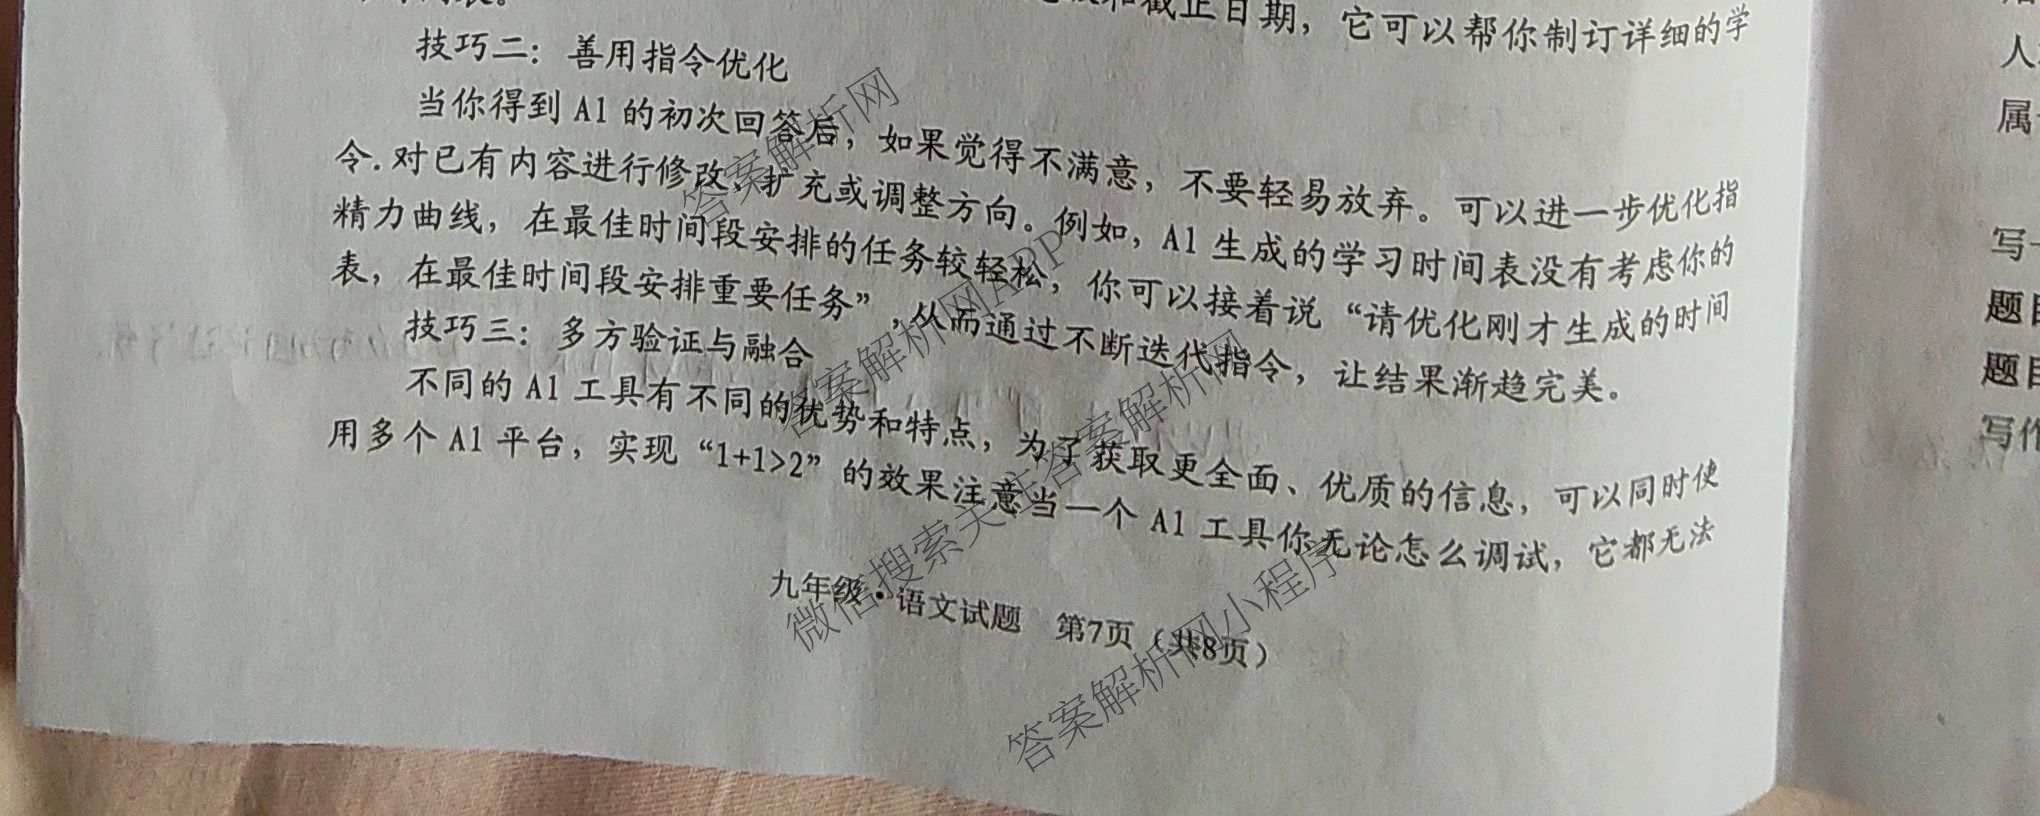 和截止日期，它可以帮你制订详细的学
表。
技巧二：善用指令优化
当你得到 A1 的初次回答后，如果觉得不满意，不要轻易放弃。可以进一步优化指
令.对已有内容进行修改、扩充或调整方向。例如，A1 生成的学习时间表没有考虑你的
精力曲线，在最佳时间段安排的任务较轻松，你可以接着说“请优化刚才生成的时间
表，在最佳时间段安排重要任务”,从而通过不断迭代指令，让结果渐趋完美。
技巧三：多方验证与融合
不同的 A1 工具有不同的优势和特点，为了获取更全面、优质的信息，可以同时使
用多个 A1 平台，实现“1+1>2”的效果注意当一个 A1 工具你无论怎么调试，它都无法
九年级·语文试题　第7页（共8页）
人
属
写
题
题
写作
答案解析网
答案解析网APP
微信搜索关注答案解析网
答案解析网小程序